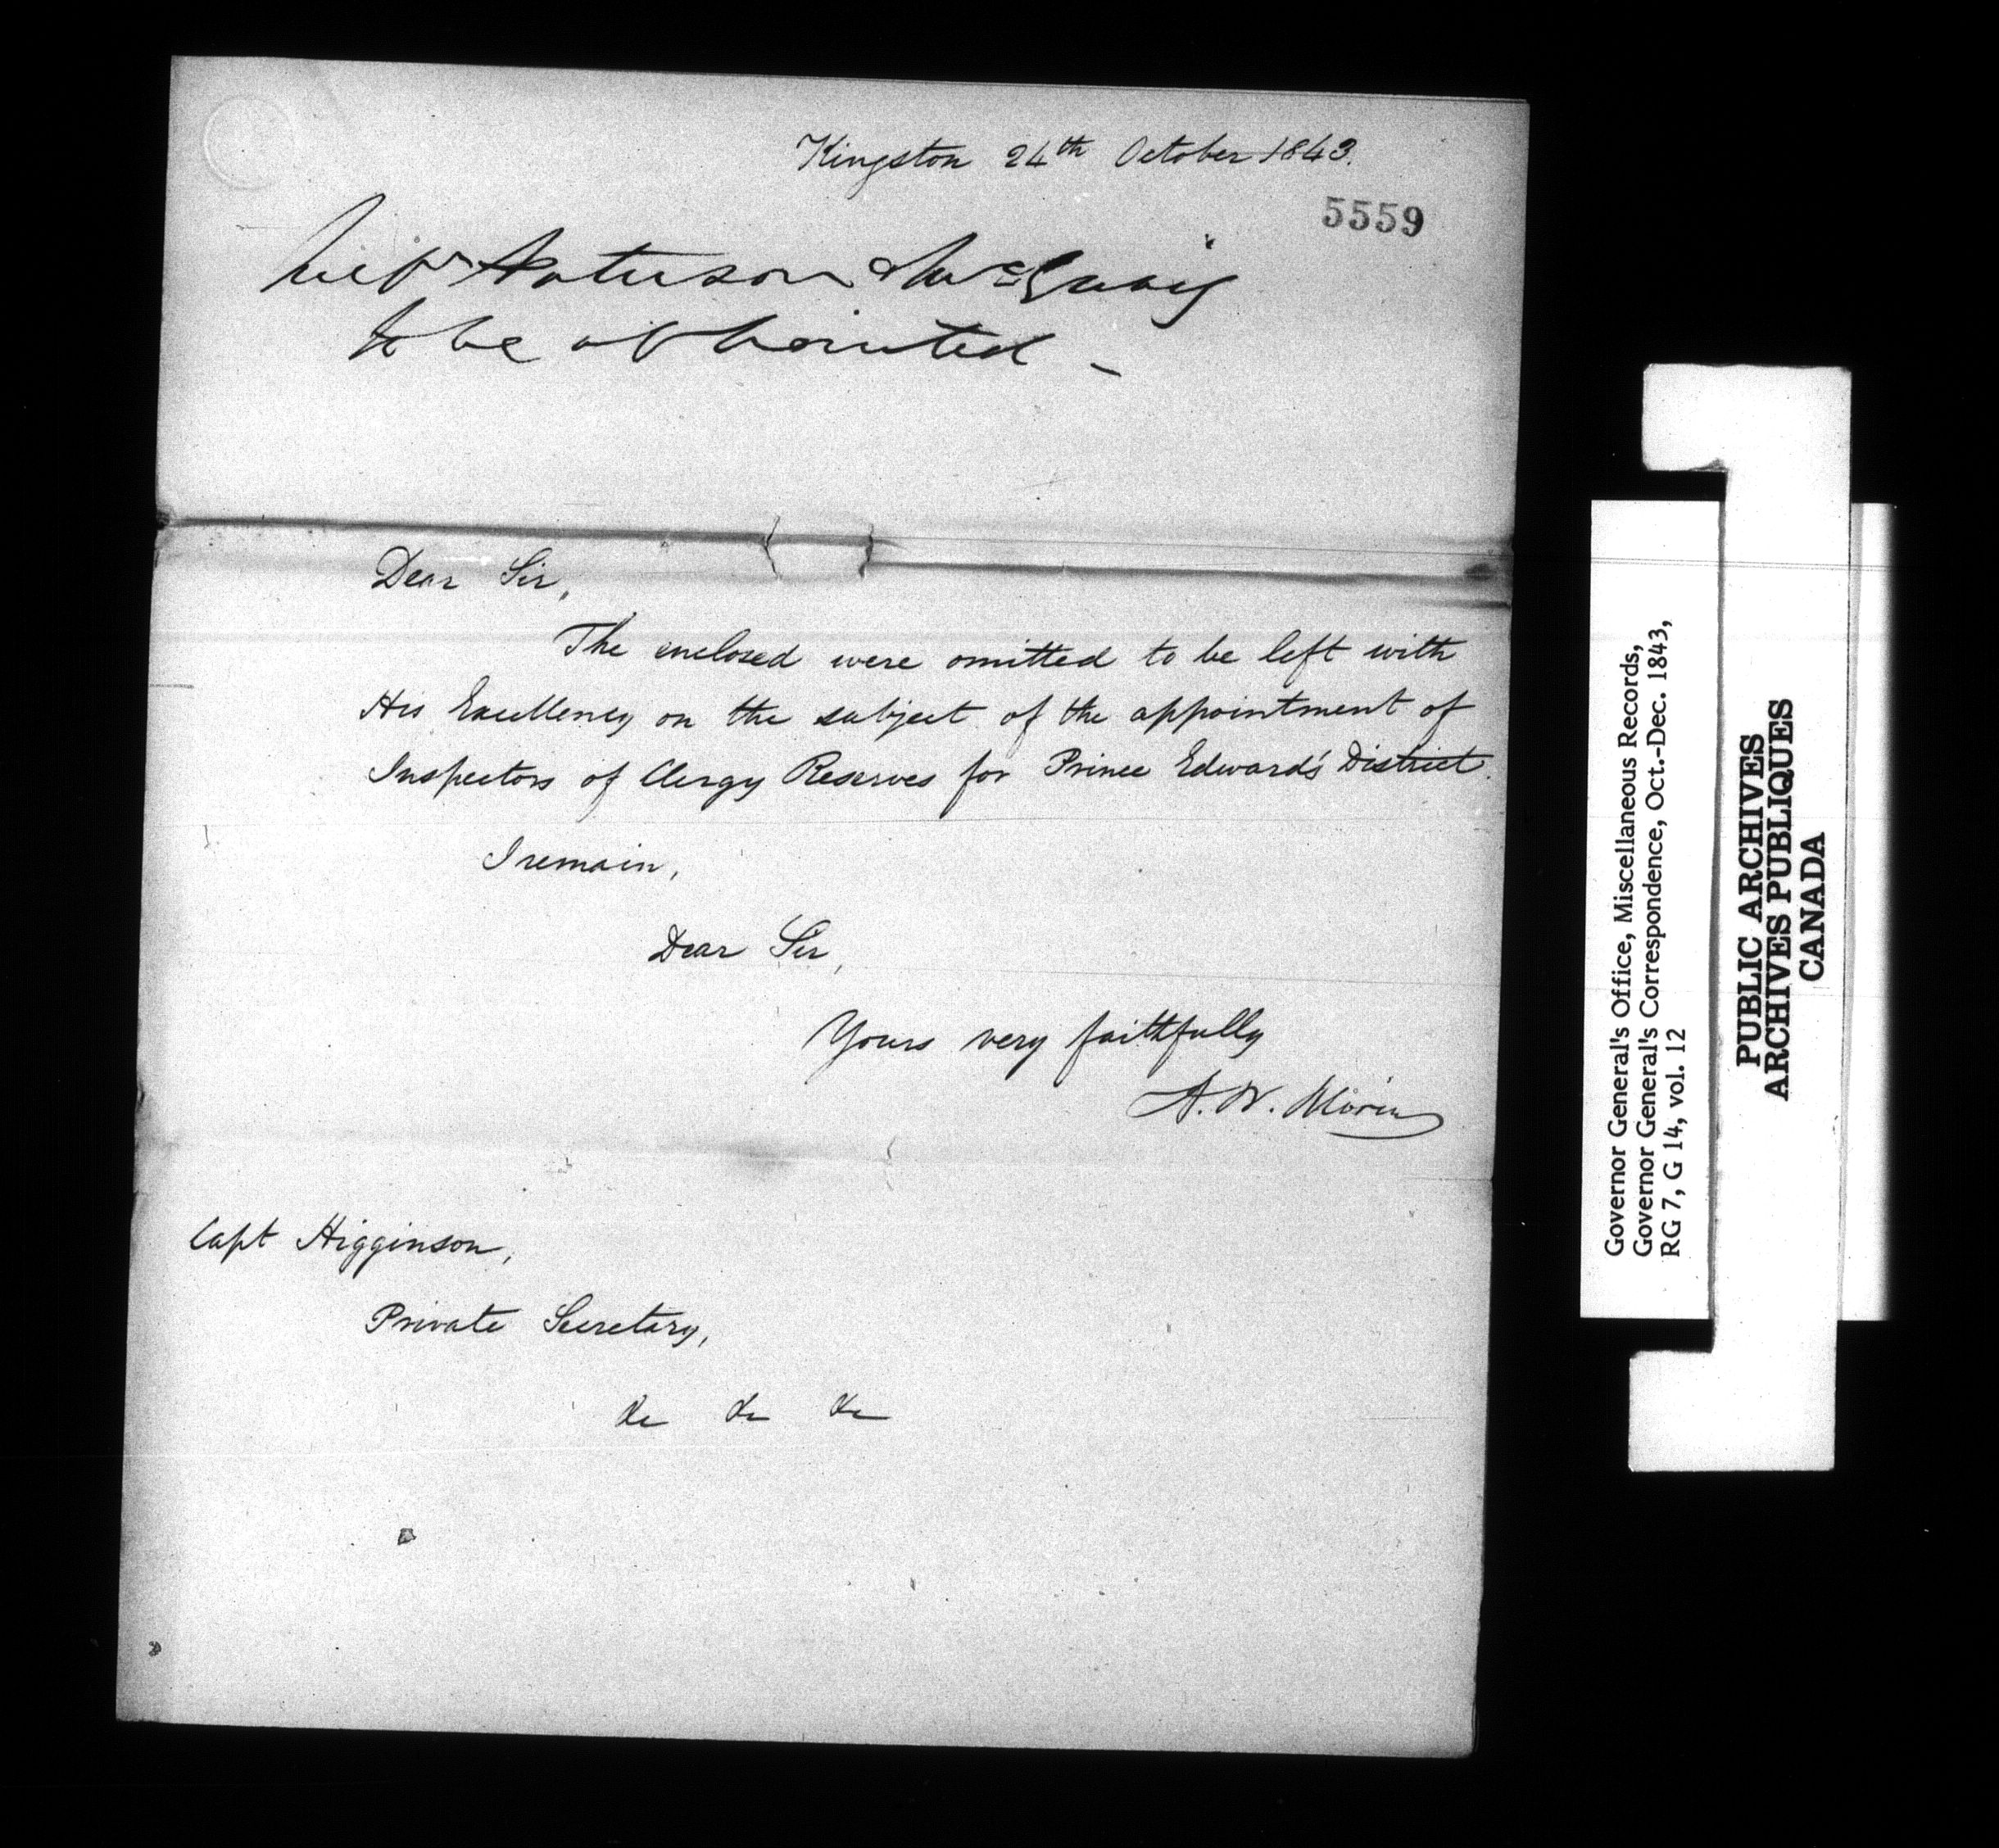 Kingston 24th October 1843.
5559
to be appointed –
Dear Sir,
The enclosed were omitted to be left with
His Excellency on the subject of the appointment of
Inspectors of Clergy Reserves for Prince Edward's District.
I remain,
Dear Sir,
Yours very faithfully
A. N. Morin
Capt Higginson,
Private Secretary,
&c &c &c
Governor General's Office, Miscellaneous Records,
Governor General's Correspondence, Oct.-Dec. 1843,
RG 7, G 14, vol. 12
PUBLIC ARCHIVES
ARCHIVES PUBLIQUES
CANADA